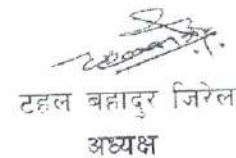 टहल बहादुर जिरेल
अध्यक्ष